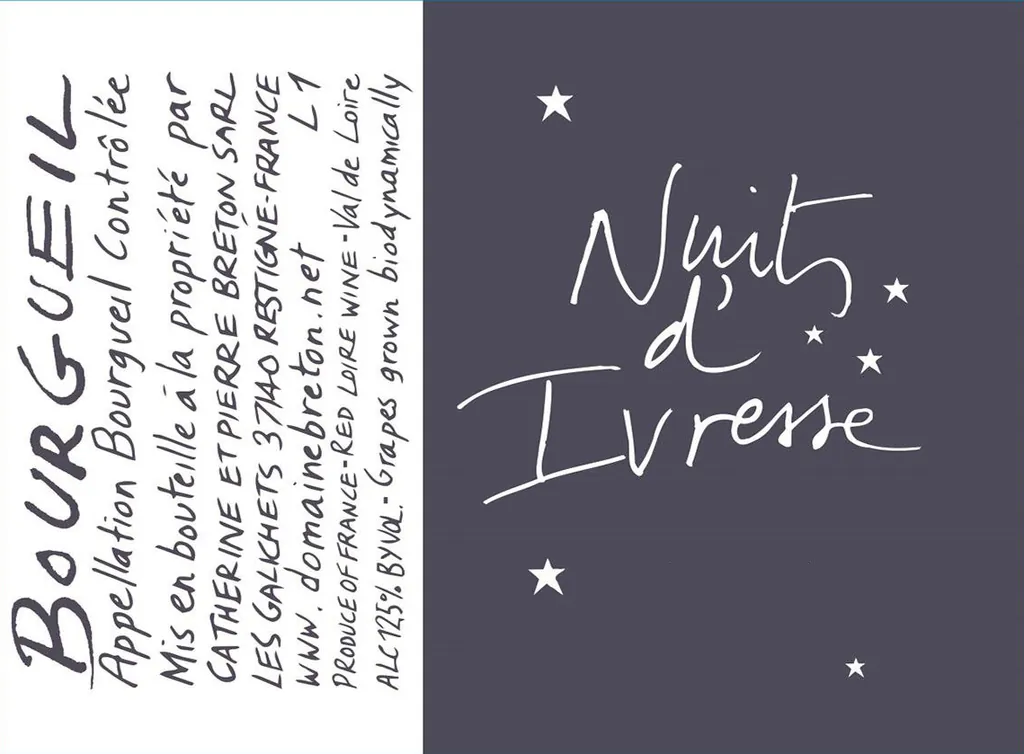 BOURGUEIL
Appellation Bourgueil Contrôlée
Mis en bouteille à la propriété par
CATHERINE ET PIERRE BRETON SARL
LES GALICHETS 37140 RESTIGNE-FRANCE
www.domainebreton.net L1
PRODUCE OF FRANCE-RED LOIRE WINE-Val de Loire
ALC 12,5% BY VOL.- Grapes grown biodynamically
Nuits
d'
Ivresse